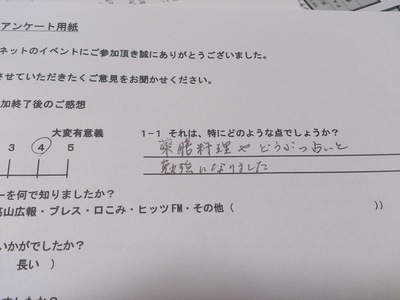 アンケート用紙
ネットのイベントにご参加頂き誠にありがとうございました。
させていただきたくご意見をお聞かせください。
加終了後のご感想
大変有意義
3 4 5
1-1 それは、特にどのような点でしょうか?
薬膳料理や どうぶつ占いと
勉強になりました
ーを何で知りましたか?
高山広報・プレス・口こみ・ヒッツFM・その他( ))
いかがでしたか?
長い )
ましたか?